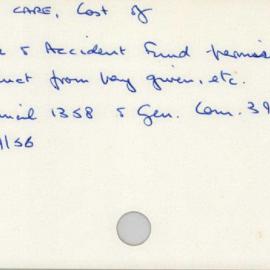 CARE, Cost of
& Accident Fund permiss
from being given, etc.
1358 & Gen. Com. 39
/56